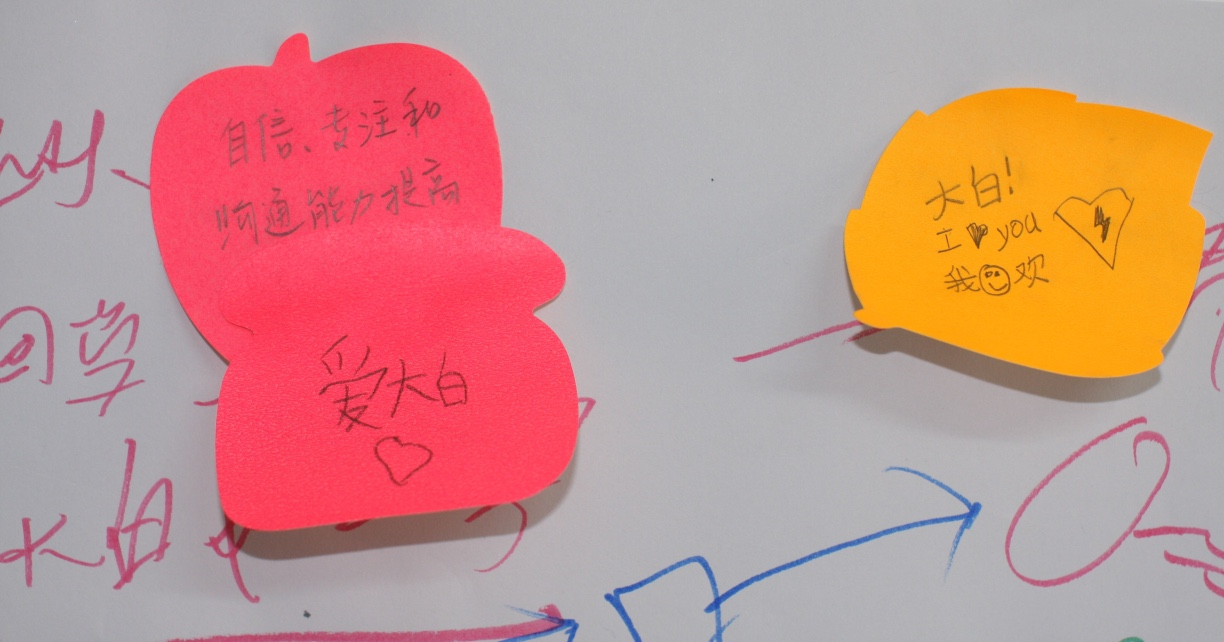 自信、专注和
沟通能力提高
爱大白
大白!
I you
我 欢
回学
大白